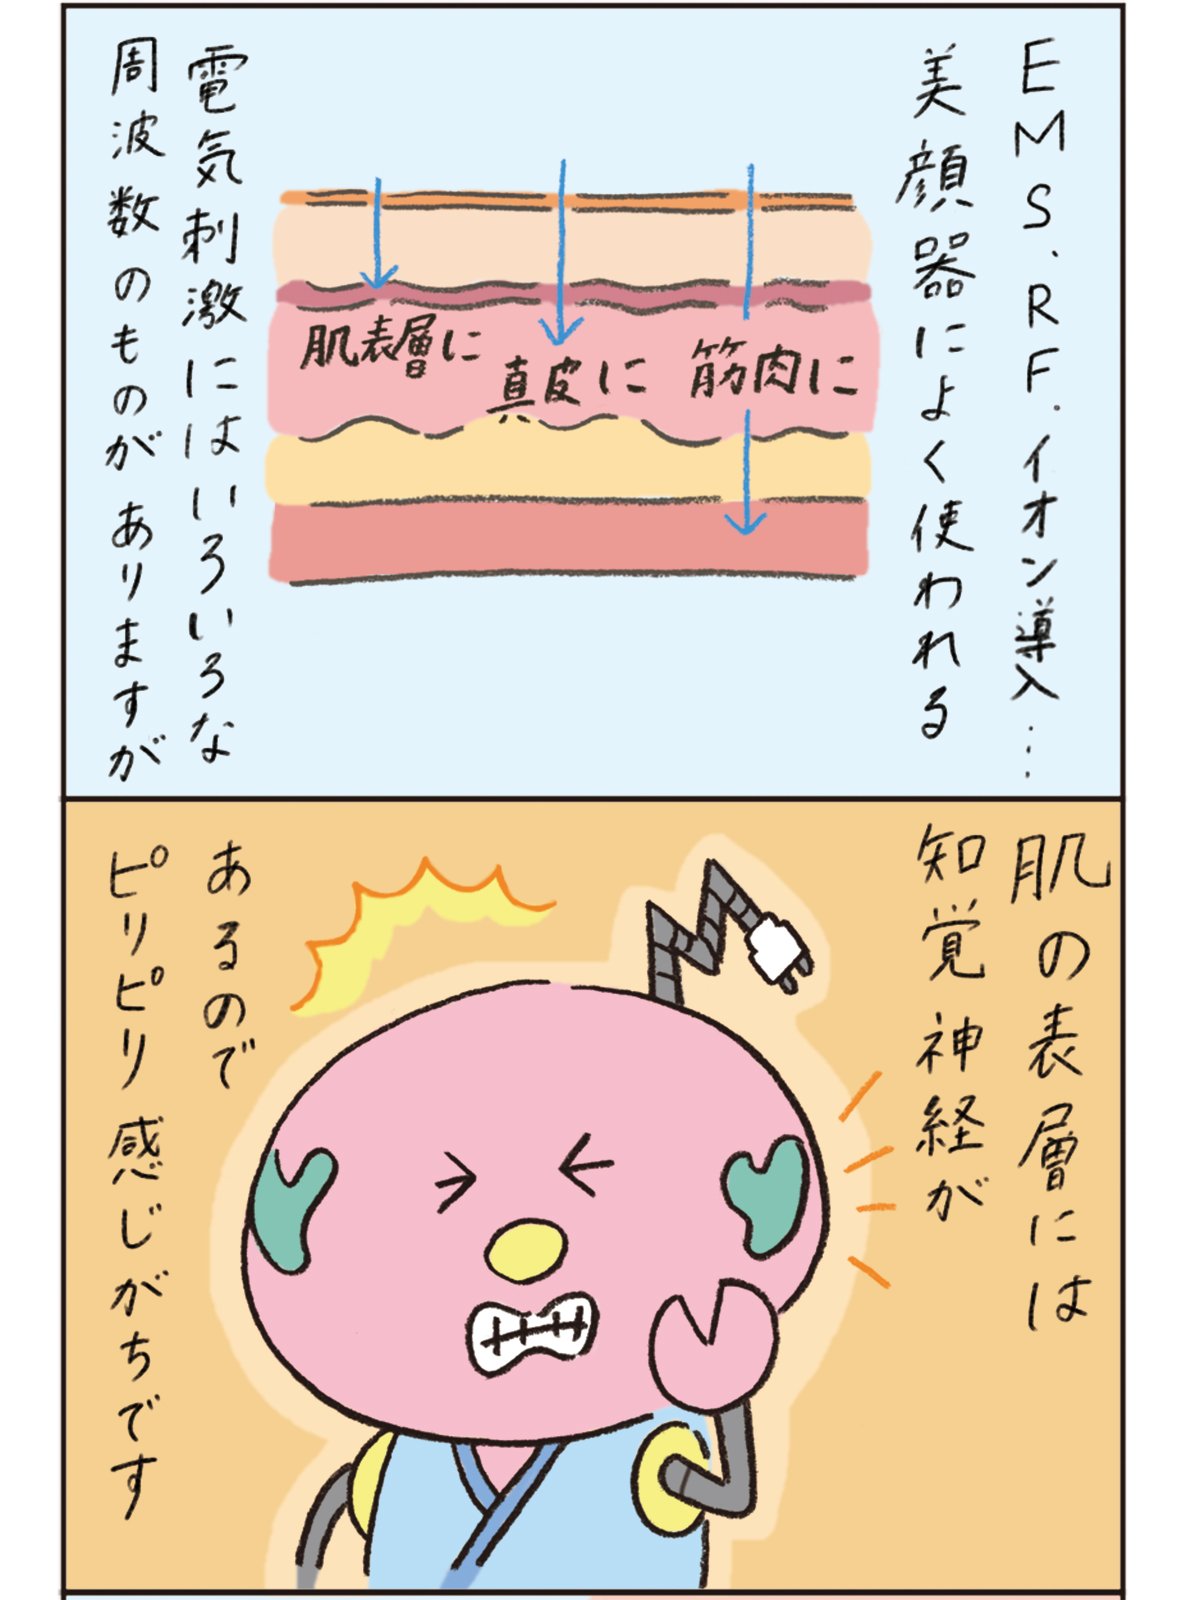 EMS、RF、イオン導入…
美顔器によく使われる
電気刺激にはいろいろな
周波数のものがありますが
肌表層に
真皮に
筋肉に
肌の表層には
知覚神経が
あるので
ピリピリ感じがちです